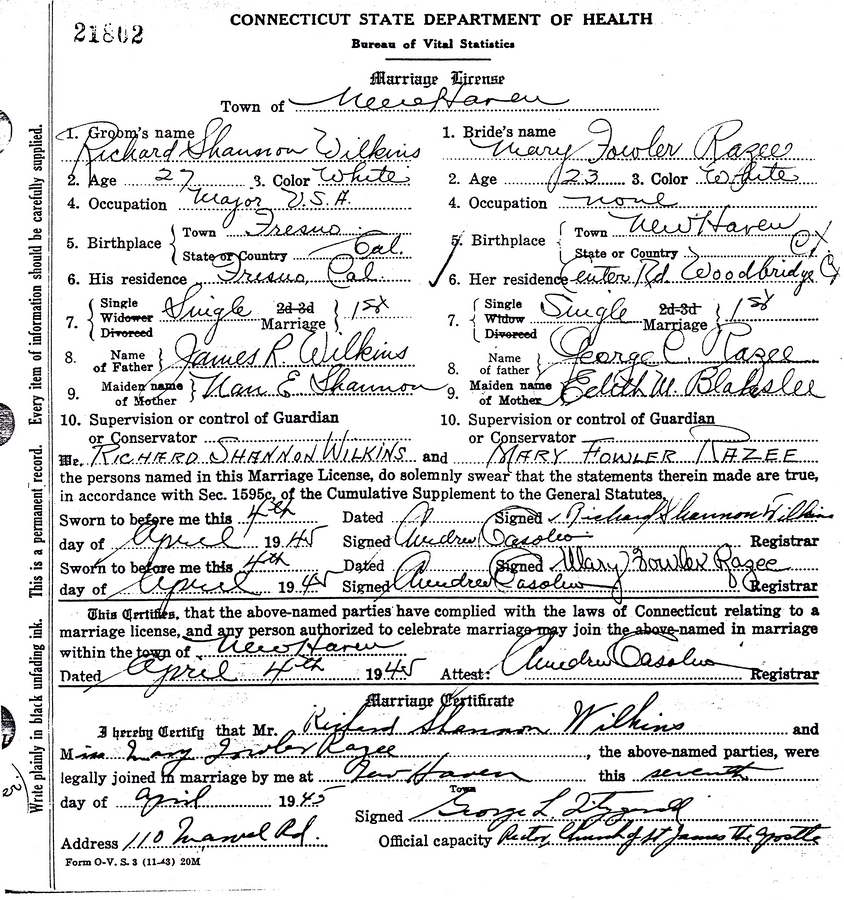 21802
CONNECTICUT STATE DEPARTMENT OF HEALTH
Bureau of Vital Statistics
Marriage License
Town of New Haven
1. Groom's name Richard Shannon Wilkins
2. Age 27 3. Color White
4. Occupation Major U.S.A.
5. Birthplace Town Fresno
State or Country Cal.
6. His residence Fresno, Cal.
7. Single Widower Divorced Single 2d-3d Marriage 1st
8. Name of Father James R. Wilkins
9. Maiden name of Mother Nan E. Shannon
10. Supervision or control of Guardian
or Conservator
1. Bride's name Mary Fowler Razee
2. Age 23 3. Color White
4. Occupation none
5. Birthplace Town New Haven
State or Country Ct
6. Her residence Center Rd. Woodbridge Ct
7. Single Widow Divorced Single 2d-3d Marriage 1st
8. Name of father George C. Razee
9. Maiden name of Mother Edith M. Blakeslee
10. Supervision or control of Guardian
or Conservator
We, RICHARD SHANNON WILKINS and MARY FOWLER RAZEE
the persons named in this Marriage License, do solemnly swear that the statements therein made are true,
in accordance with Sec. 1595c, of the Cumulative Supplement to the General Statutes.
Sworn to before me this 4th Dated Signed Richard Shannon Wilkins
day of April 1945 Signed Registrar
Sworn to before me this 4th Dated Signed Mary Fowler Razee
day of April 1945 Signed Registrar
This Certifies, that the above-named parties have complied with the laws of Connecticut relating to a
marriage license, and any person authorized to celebrate marriage may join the above-named in marriage
within the town of New Haven
Dated April 4th 1945 Attest: Registrar
Marriage Certificate
I hereby Certify that Mr. Richard Shannon Wilkins and
Miss Mary Fowler Razee, the above-named parties, were
legally joined in marriage by me at New Haven this seventh
Town
day of April 1945 Signed George L. Fitzgerald
Address 110 Marvel Rd. Official capacity Rector, Church of St James the Apostle
Form O-V. S. 3 (11-43) 20M
Write plainly in black unfading ink. This is a permanent record. Every item of information should be carefully supplied.